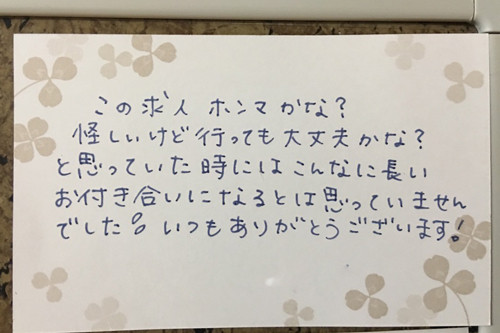 この求人 ホンマかな?
怪しいけど行っても大丈夫かな?
と思っていた時にはこんなに長い
お付き合いになるとは思っていません
でした。いつもありがとうございます!